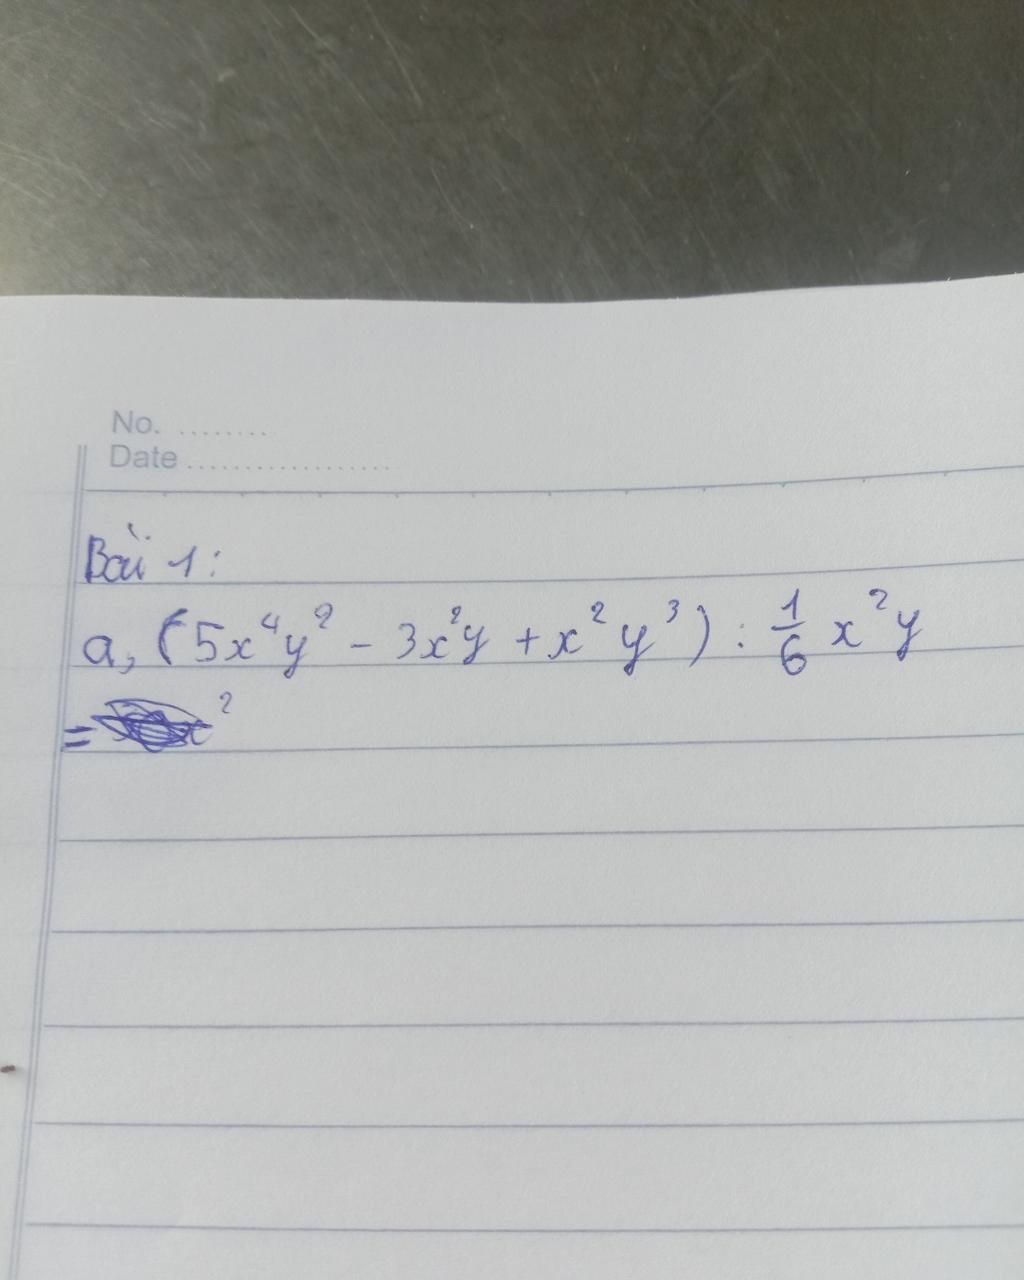 No. ........
Date ..................
Bài 1:
a, (5x⁴y² - 3x²y + x²y³) : 1/6 x²y
= ²